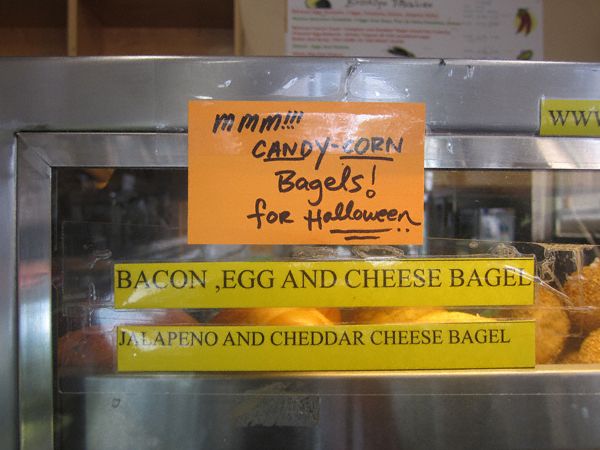 WWW
mmm!!!
CANDY-CORN
Bagels!
for Halloween
BACON ,EGG AND CHEESE BAGEL
JALAPENO AND CHEDDAR CHEESE BAGEL